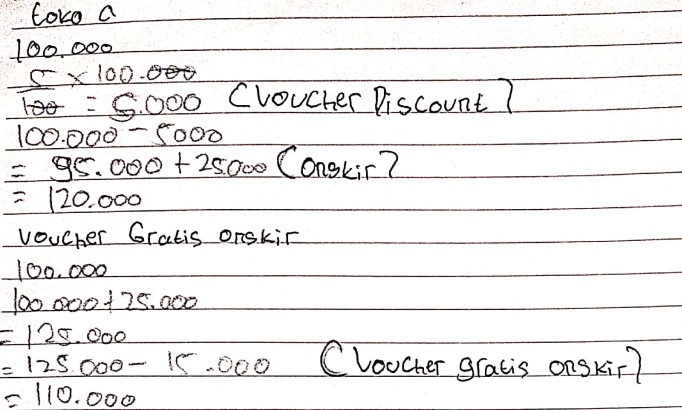 toko a
100.000
5 x 100.000
100 = 5.000 (Voucher Discount)
100.000 - 5000
= 95.000 + 25000 (ongkir)
= 120.000
Voucher Gratis ongkir
100.000
100.000 + 25.000
= 125.000
= 125.000 - 15.000 (Voucher gratis ongkir)
= 110.000